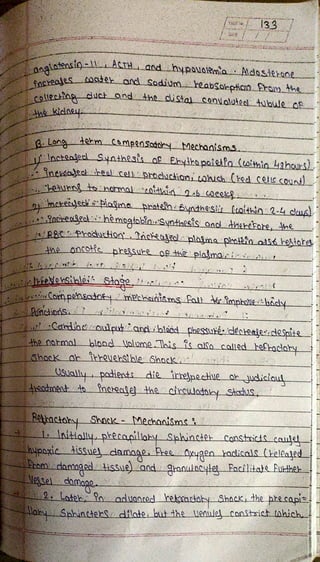 Page No. 133
Date / /
angiotensin-II, ACTH, and hypovolemia. Aldosterone
increases water and sodium reabsorption from the
collecting duct and the distal convoluted tubule of
the kidney.
B. Long term Compensatory Mechanisms.
1) Increased Synthesis of Erythropoietin (within 48hours)
Increased red cell production, which (red cells count)
returns to normal within 2-6 weeks
2) Increased Plasma protein Synthesis (within 2-4 days)
Increased hemoglobin Synthesis and therefore, the
RBC Production. Increased plasma protein also restores
the oncotic pressure of the plasma.
Irreversible Stage
Compensatory mechanisms fail to improve body
functions.
Cardiac output and blood pressure decrease despite
the normal blood volume. This is also called refractory
shock or irreversible shock.
Usually, patients die irrespective or judicious
treatment to increases the circulatory status.
Refractory Shock - Mechanisms:
1. Initially, precapillary Sphincter constricts causes
hypoxic tissues damage. Free Oxygen radicals (released
from damaged tissue) and granulocytes Facilitate Further
Vessel damage.
2. Later, in advanced refractory Shock, the precapi=
llary Sphincters dilate, but the venules constrict which